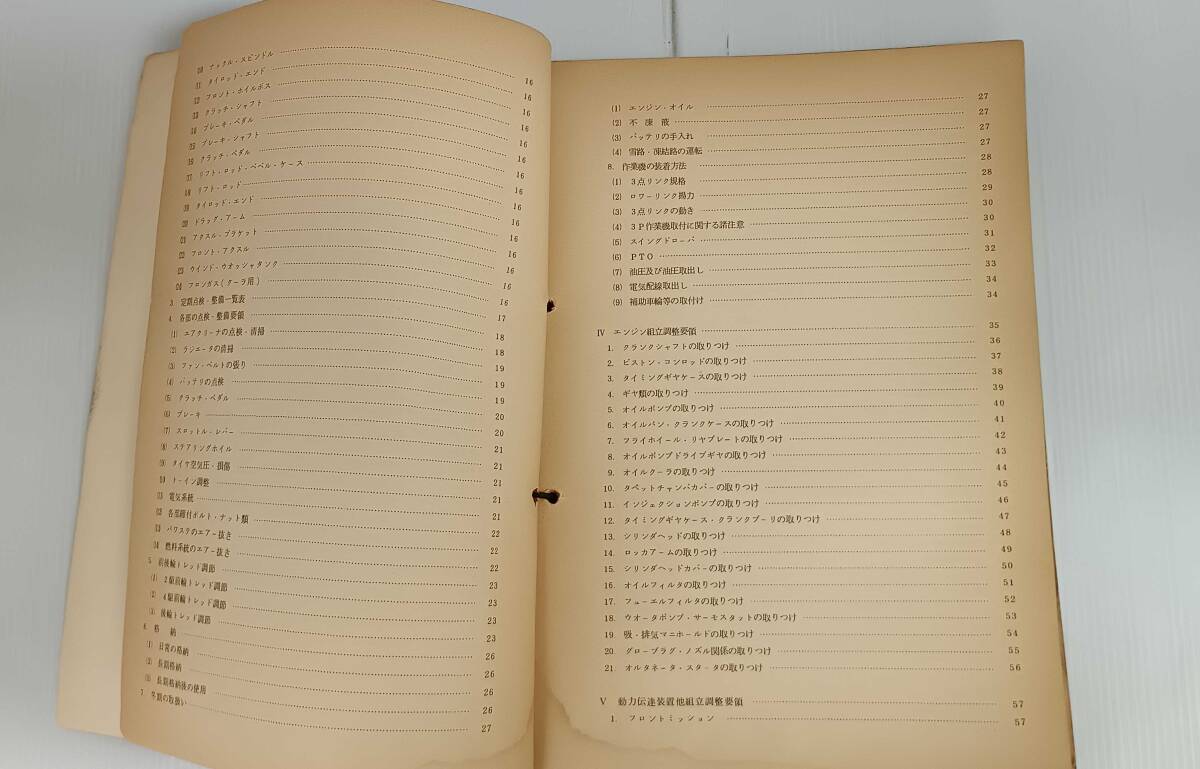 ⑽ ナックル・スピンドル 16
⑾ タイロッド・エンド 16
⑿ フロント・ホイルボス 16
⒀ クラッチ・シャフト 16
⒁ ブレーキ・ペダル 16
⒂ ブレーキ・シャフト 16
⒃ クラッチ・ペダル 16
⒄ リフト・ロッド・ベベル・ケース 16
⒅ リフト・ロッド 16
⒆ タイロッド・エンド 16
⒇ ドラッグ・アーム 16
(21) アクスル・ブラケット 16
(22) フロント・アクスル 16
(23) ウインド・ウオッシャタンク 16
(24) フロンガス(クーラ用) 16
3. 定期点検・整備一覧表 16
4. 各部の点検・整備要領 17
(1) エアクリーナの点検・清掃 18
(2) ラジエータの清掃 18
(3) ファン・ベルトの張り 19
(4) バッテリの点検 19
(5) クラッチ・ペダル 19
(6) ブレーキ 20
(7) スロットル・レバー 20
(8) ステアリングホイル 21
(9) タイヤ空気圧・損傷 21
⑽ トーイン調整 21
⑾ 電気系統 21
⑿ 各部締付ボルト・ナット類 22
⒀ パワステのエアー抜き 22
⒁ 燃料系統のエアー抜き 22
5. 前後輪トレッド調節 23
(1) 2駆前輪トレッド調節 23
(2) 4駆前輪トレッド調節 23
(3) 後輪トレッド調節 23
6. 格 納 26
(1) 日常の格納 26
(2) 長期格納 26
(3) 長期格納後の使用 26
7. 冬期の取扱い 27
(1) エンジン・オイル 27
(2) 不 凍 液 27
(3) バッテリの手入れ 27
(4) 雪路・凍結路の運転 27
8. 作業機の装着方法 28
(1) 3点リンク規格 28
(2) ロワーリンク揚力 29
(3) 3点リンクの動き 30
(4) 3P作業機取付に関する諸注意 30
(5) スイングドローバ 31
(6) PTO 32
(7) 油圧及び油圧取出し 33
(8) 電気配線取出し 34
(9) 補助車輪等の取付け 34
Ⅳ エンジン組立調整要領 35
1. クランクシャフトの取りつけ 36
2. ピストン・コンロッドの取りつけ 37
3. タイミングギヤケースの取りつけ 38
4. ギヤ類の取りつけ 39
5. オイルポンプの取りつけ 40
6. オイルパン・クランクケースの取りつけ 41
7. フライホイール・リヤプレートの取りつけ 42
8. オイルポンプドライブギヤの取りつけ 43
9. オイルクーラの取りつけ 44
10. タペットチャンバカバーの取りつけ 45
11. インジェクションポンプの取りつけ 46
12. タイミングギヤケース・クランクプーリの取りつけ 47
13. シリンダヘッドの取りつけ 48
14. ロッカアームの取りつけ 49
15. シリンダヘッドカバーの取りつけ 50
16. オイルフィルタの取りつけ 51
17. フューエルフィルタの取りつけ 52
18. ウオータポンプ・サーモスタットの取りつけ 53
19. 吸・排気マニホールドの取りつけ 54
20. グロープラグ・ノズル関係の取りつけ 55
21. オルタネータ・スタータの取りつけ 56
Ⅴ 動力伝達装置他組立調整要領 57
1. フロントミッション 57